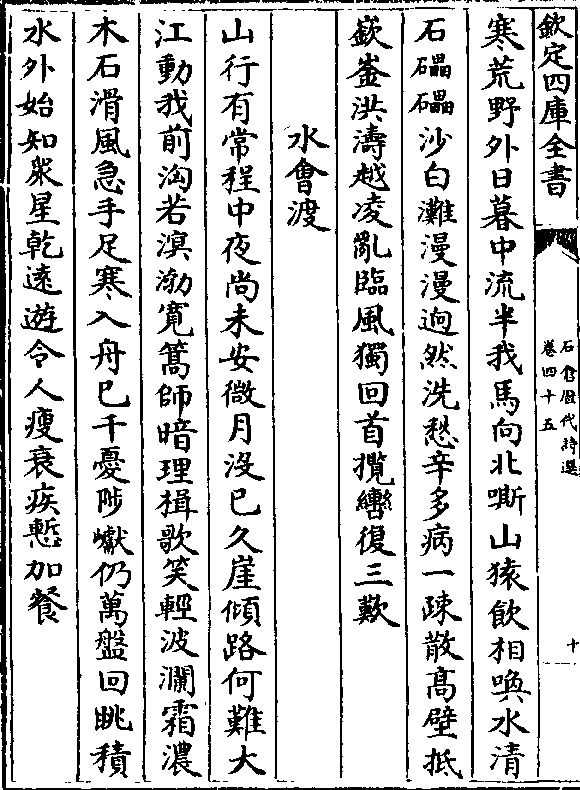 欽定四庫全書
石倉歷代詩選
卷四十五
十
寒荒野外日暮中流半我馬向北嘶山猿飲相喚水清
石礧礧沙白灘漫漫逈然洗愁辛多病一疎散高壁抵
嶔崟洪濤越凌亂臨風獨回首攬轡復三歎
水會渡
山行有常程中夜尚未安微月沒已久崖傾路何難大
江動我前洶若溟渤寛篙師暗理楫歌笑輕波瀾霜濃
木石滑風急手足寒入舟已千憂陟巘仍萬盤回眺積
水外始知衆星乾逺遊令人瘦衰疾慙加餐